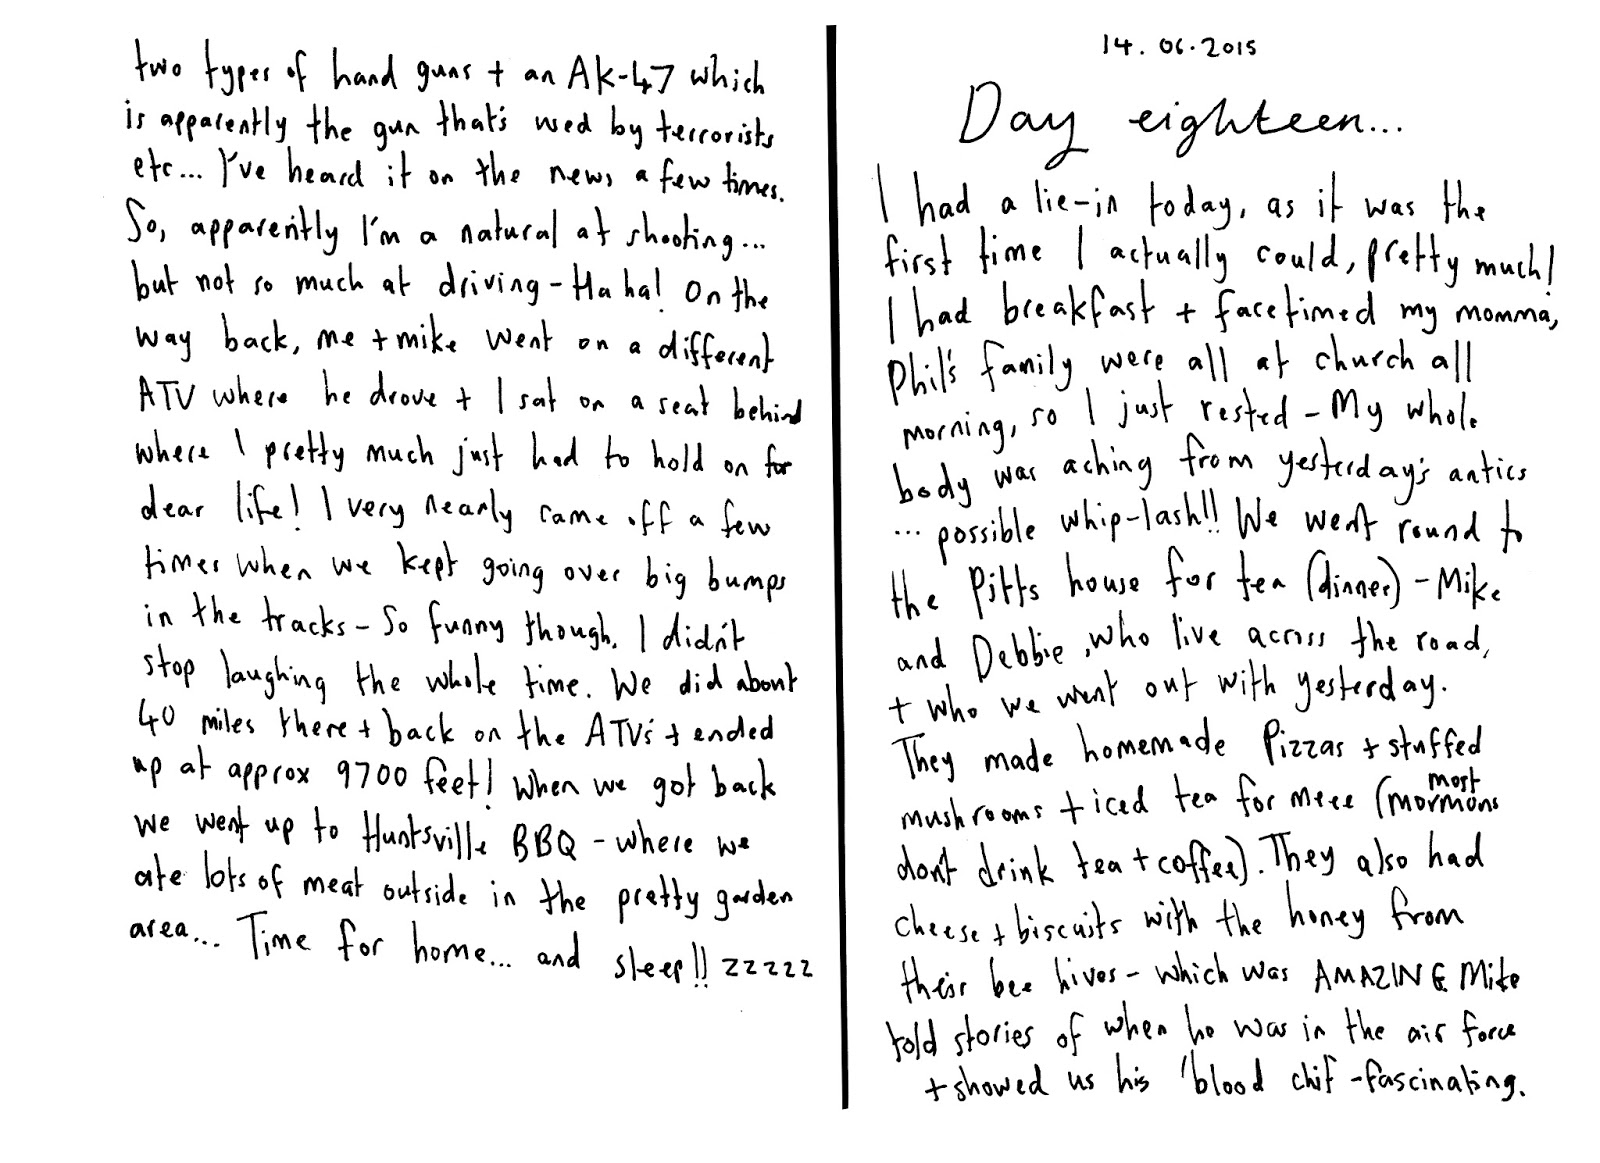 two types of hand guns + an AK-47 which
is apparently the gun that's used by terrorists
etc... I've heard it on the news a few times.
So, apparently I'm a natural at shooting...
but not so much at driving - Ha ha! On the
way back, me + mike went on a different
ATV where he drove + I sat on a seat behind
where I pretty much just had to hold on for
dear life! I very nearly came off a few
times when we kept going over big bumps
in the tracks - So funny though. I didn't
stop laughing the whole time. We did about
40 miles there + back on the ATV's + ended
up at approx 9700 feet! When we got back
we went up to Huntsville BBQ - where we
ate lots of meat outside in the pretty garden
area... Time for home... and sleep!! zzzzz
14.06.2015
Day eighteen...
I had a lie-in today, as it was the
first time I actually could, pretty much!
I had breakfast + facetimed my momma,
Phil's family were all at church all
morning, so I just rested - My whole
body was aching from yesterday's antics
... possible whip-lash!! We went round to
the Pitts house for tea (dinner) - Mike
and Debbie, who live across the road,
+ who we went out with yesterday.
They made homemade Pizzas + stuffed
mushrooms + iced tea for meee (most mormons
don't drink tea + coffee). They also had
cheese + biscuits with the honey from
their bee hives - which was AMAZING. Mike
told stories of when he was in the air force
+ showed us his 'blood chit - fascinating.